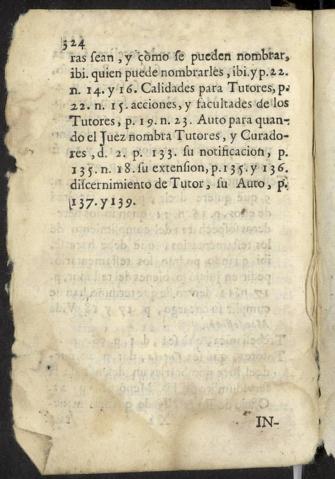 324
ras sean, y còmo se pueden nombrar,
ibi. quien puede nombrarles, ibi. y p. 22.
n. 14. y 16. Calidades para Tutores, p.
22. n. 15. acciones, y facultades de los
Tutores, p. 19. n. 23. Auto para quan-
do el Juez nombra Tutores, y Curado-
res, d. 2. p. 133. su notificacion, p.
135. n. 18. su extension, p. 135. y 136.
discernimiento de Tutor, su Auto, p.
137. y 139.
IN-